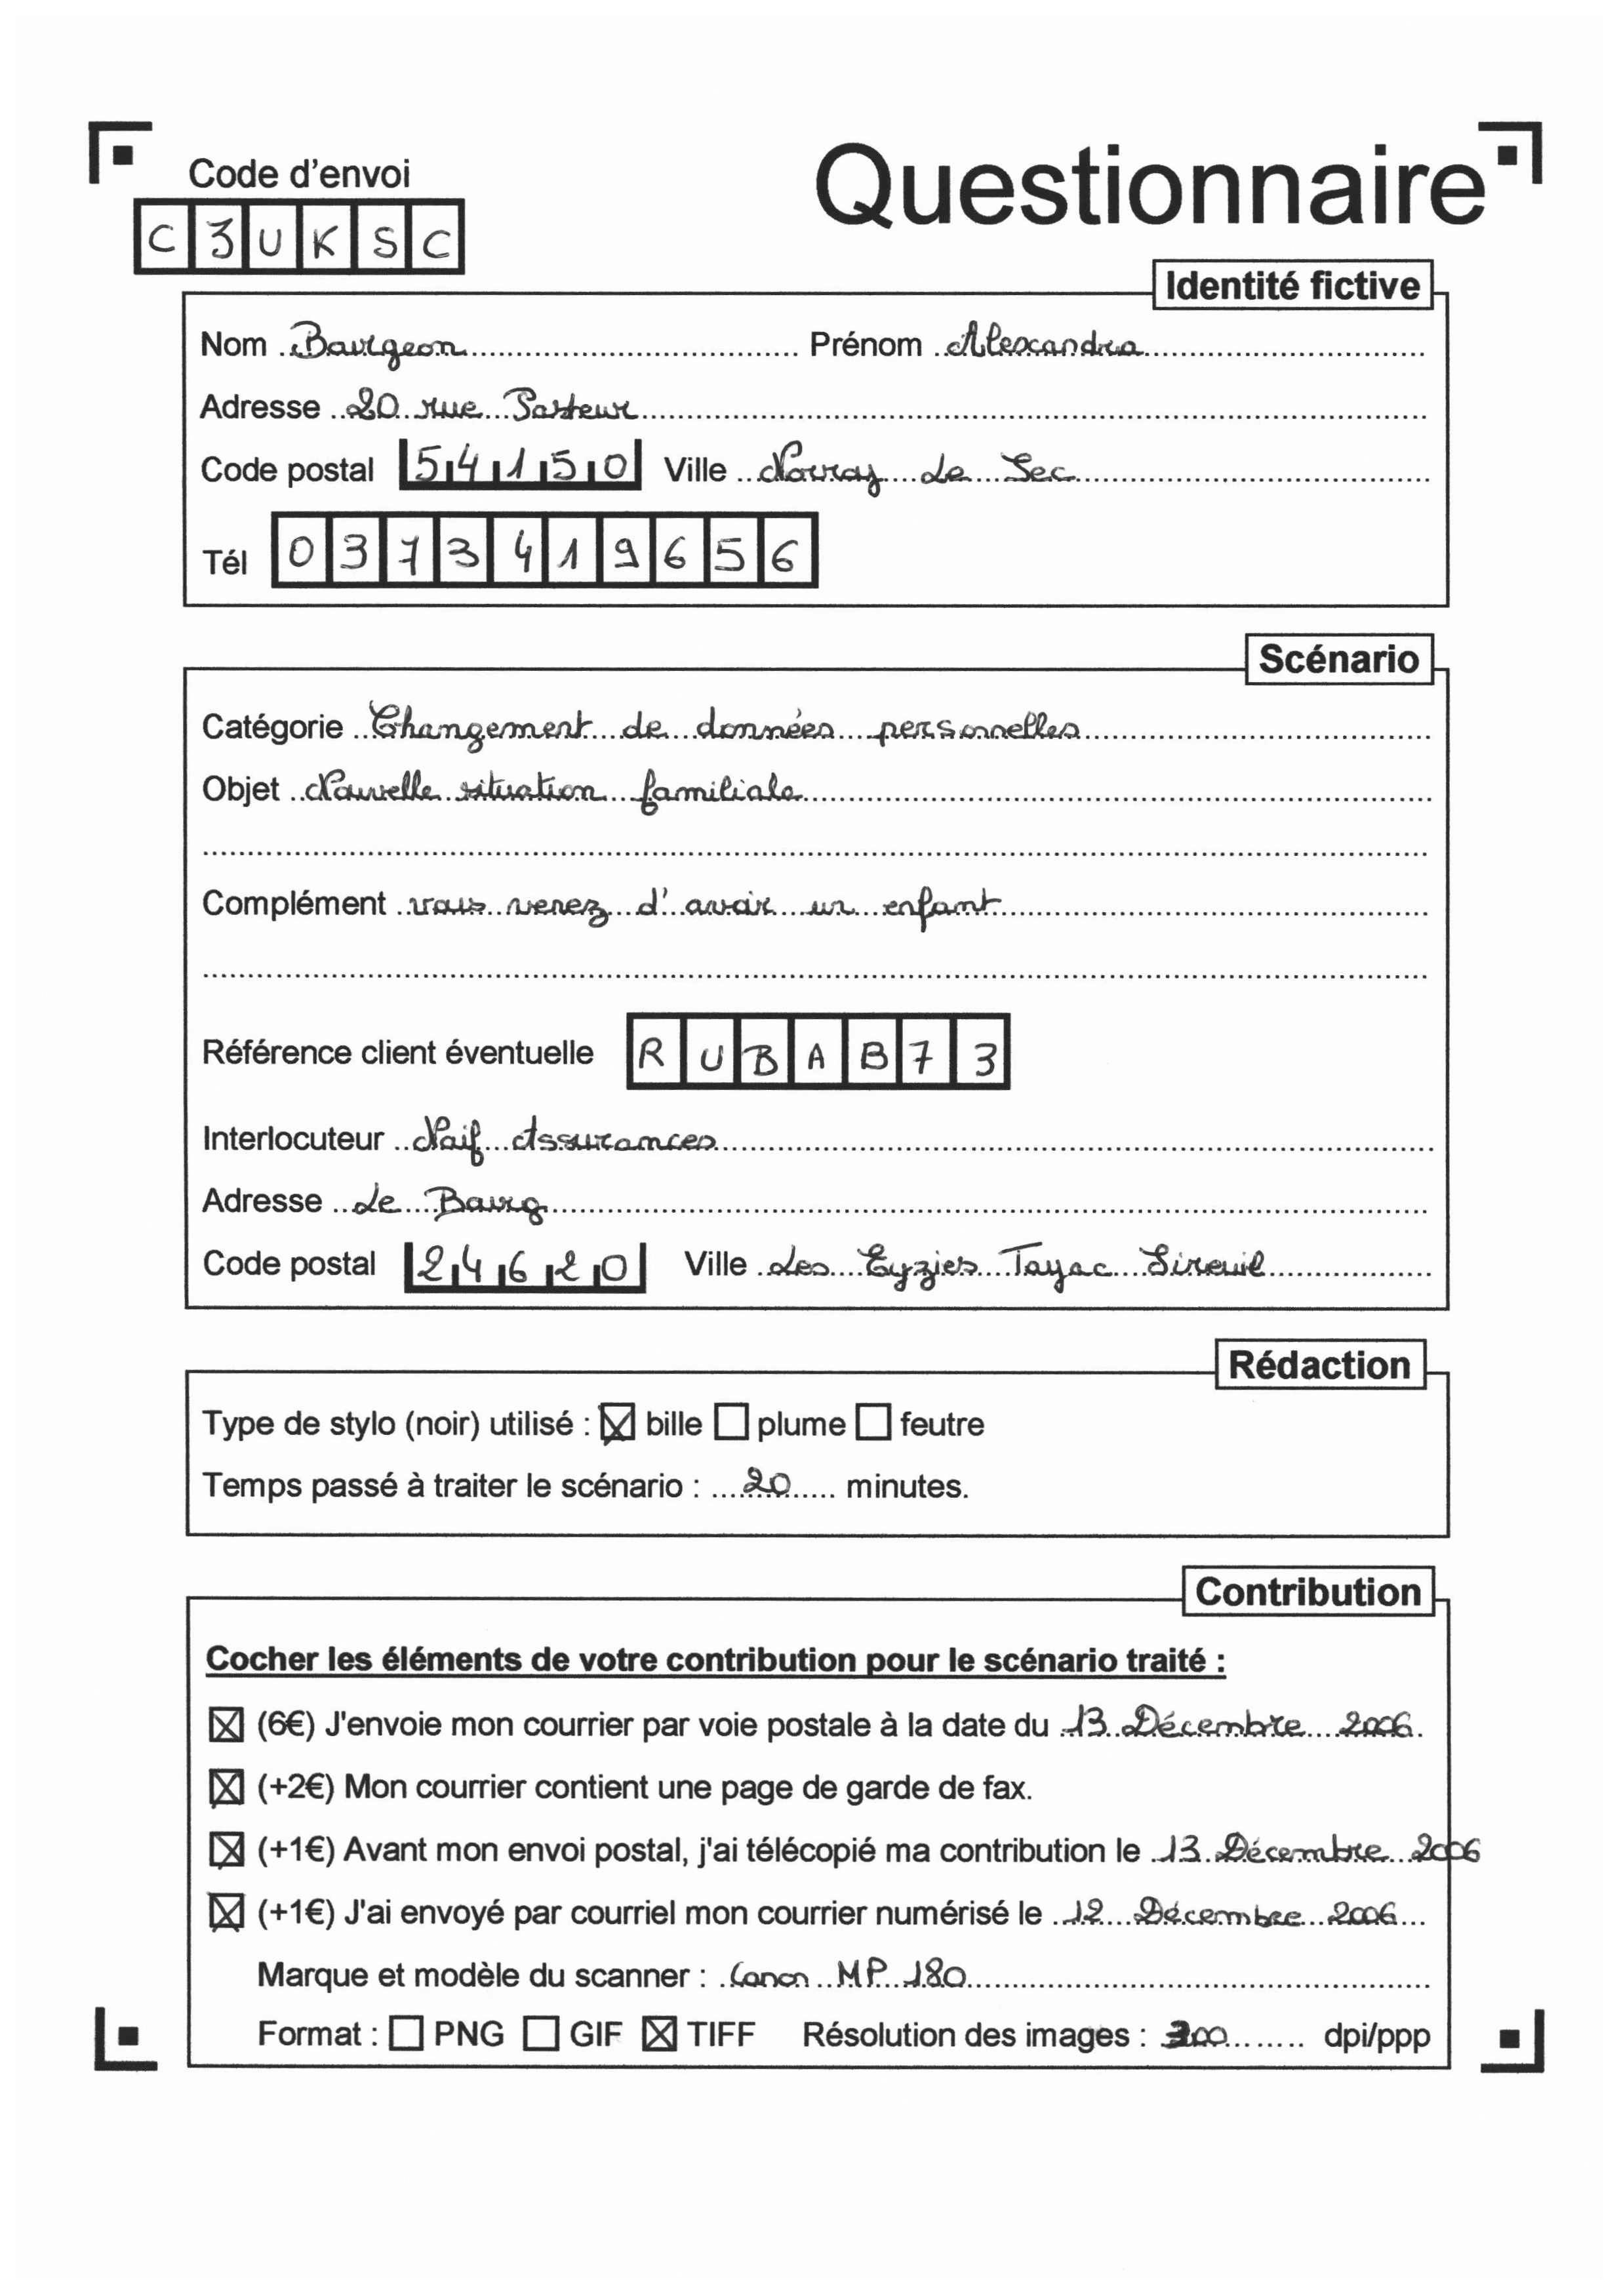 Code d'envoi
Questionnaire
C3UKSC
Identité fictive
Nom Bourgeon Prénom Alexandra
Adresse 20 rue Pasteur
Code postal 54150 Ville Norroy Le Sec
Tél 0373419656
Scénario
Catégorie Changement de données personnelles
Objet Nouvelle situation familiale
Complément vous venez d'avoir un enfant
Référence client éventuelle RUBAB73
Interlocuteur Naif Assurances
Adresse Le Bourg
Code postal 24620 Ville Les Eyzies Tayac Sireuil
Rédaction
Type de stylo (noir) utilisé : bille plume feutre
Temps passé à traiter le scénario : 20 minutes.
Contribution
Cocher les éléments de votre contribution pour le scénario traité :
(6€) J'envoie mon courrier par voie postale à la date du 13 Décembre 2006.
(+2€) Mon courrier contient une page de garde de fax.
(+1€) Avant mon envoi postal, j'ai télécopié ma contribution le 13 Décembre 2006
(+1€) J'ai envoyé par courriel mon courrier numérisé le 12 Décembre 2006
Marque et modèle du scanner : Canon MP 180
Format : PNG GIF TIFF Résolution des images : 300 dpi/ppp